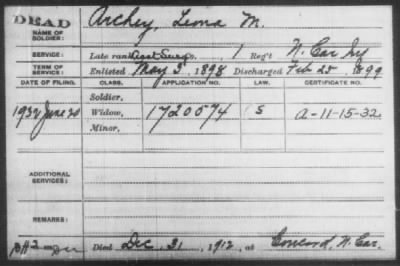 DEAD Archey, Leona M.
NAME OF SOLDIER:
SERVICE: Late rank Asst Surg Co. , 1 Reg't N. Car Inf
TERM OF SERVICE: Enlisted May 3, 1898 Discharged Feb 25, 1899
DATE OF FILING. CLASS. APPLICATION NO. LAW. CERTIFICATE NO.
Soldier,
1932 June 20 Widow, 1720574 S A-11-15-32
Minor,
ADDITIONAL SERVICES:
REMARKS:
Died Dec. 31, 1912, at Concord, N. Car.